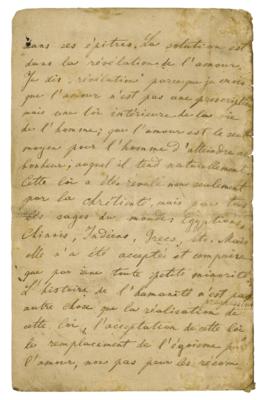 dans ses épîtres. La solution est
dans la révélation de l'amour.
Je dis "révélation" parce que je crois
que l'amour n'est pas une prescription
mais une loi intérieure de la vie
de l'homme; que l'amour est le seul
moyen pour l'homme d'atteindre au
bonheur, auquel il tend naturellement.
Cette loi a été révélé non seulement
par la Chrétienté, mais par tous
les sages du monde: Egyptiens,
Chinois, Indiens, Grecs, etc. Mais
elle n'a été acceptée et comprise
que par une toute petite minorité.
L'histoire de l'humanité n'est pas
autre chose que la réalisation
de
cette loi, l'acceptation de cette loi
le remplacement de l'égoïsme par
l'amour, non pas pour les récom